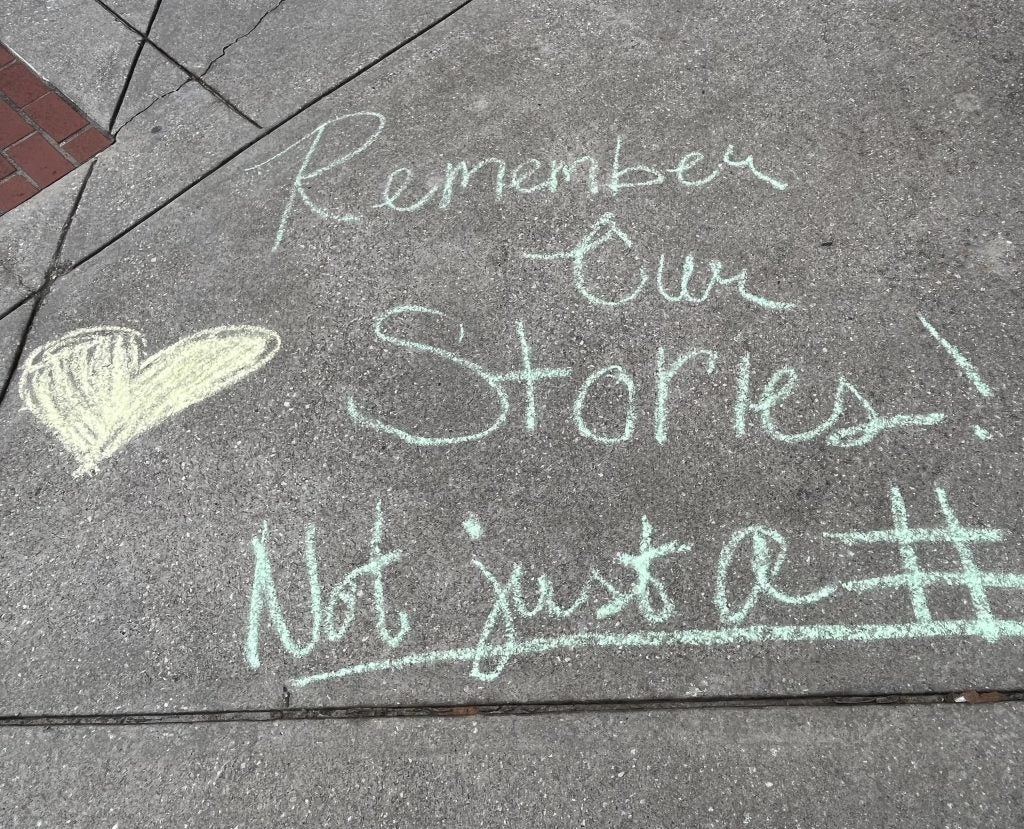 Remember
Our
Stories!
Not just a #